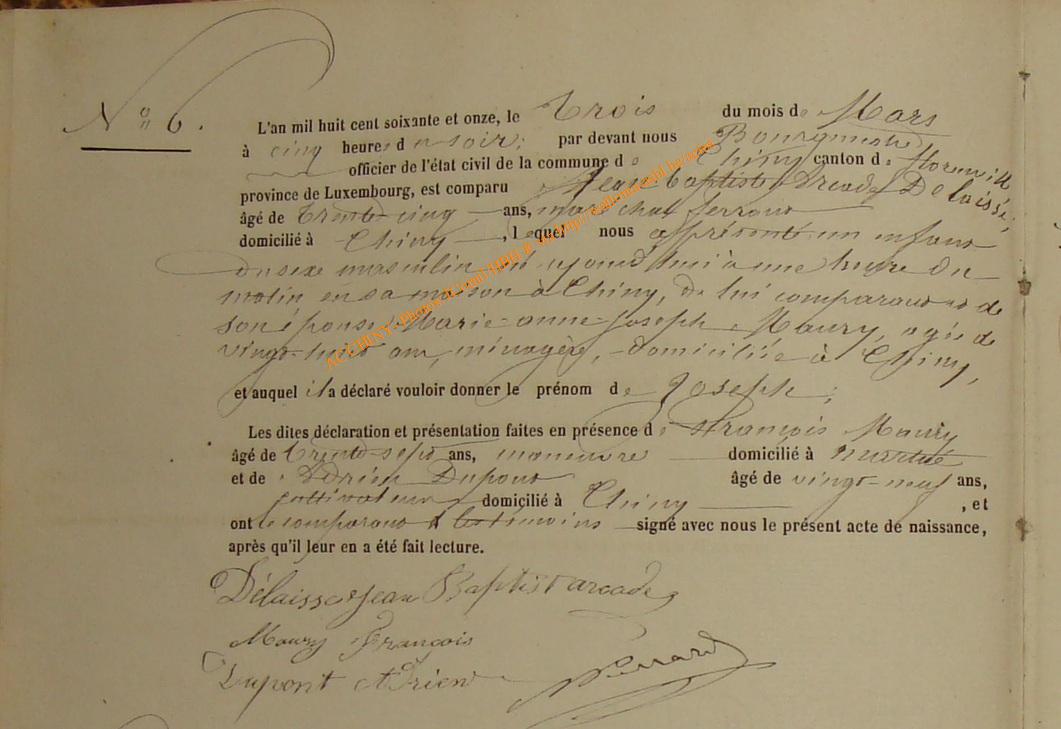 N° 6.
L'an mil huit cent soixante et onze, le trois du mois de Mars
à cinq heures du soir, par devant nous Bourgmestre
officier de l'état civil de la commune de Chiny canton de Florenville
province de Luxembourg, est comparu Jean Baptiste Arcade Delaissé,
âgé de trente-cinq ans, maréchal ferrant
domicilié à Chiny, lequel nous a présenté un enfant
du sexe masculin, né aujourd'hui à une heure du
matin en sa maison à Chiny, de lui comparant et de
son épouse Marie-anne-Joseph Maury, agée de
vingt-huit ans, ménagère, domiciliée à Chiny,
et auquel il a déclaré vouloir donner le prénom de Joseph;
Les dites déclaration et présentation faites en présence de François Maury
âgé de trente-sept ans, manœuvre domicilié à
et de Adrien Dupont âgé de vingt-neuf ans,
cultivateur domicilié à Chiny, et
ont le comparant & les témoins signé avec nous le présent acte de naissance,
après qu'il leur en a été fait lecture.
Délaisse Jean Baptist arcade
Maury François
Dupont Adrien